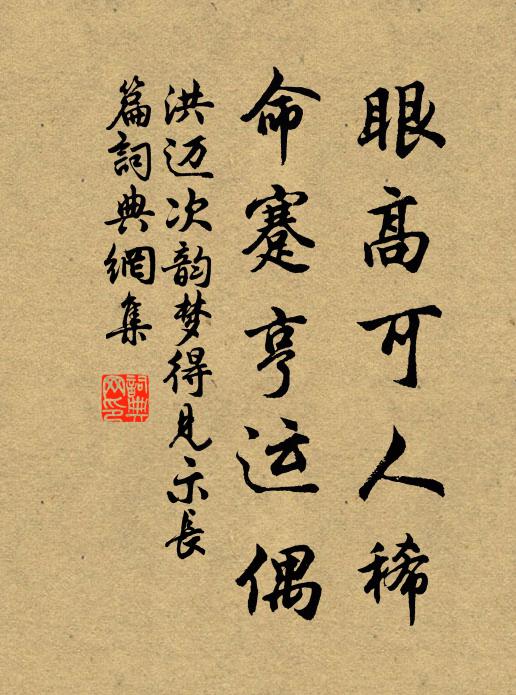 眼高可人稀
命蹇亨运偶
洪迈次韵梦得见示长
篇詞典網集
詞典
网印